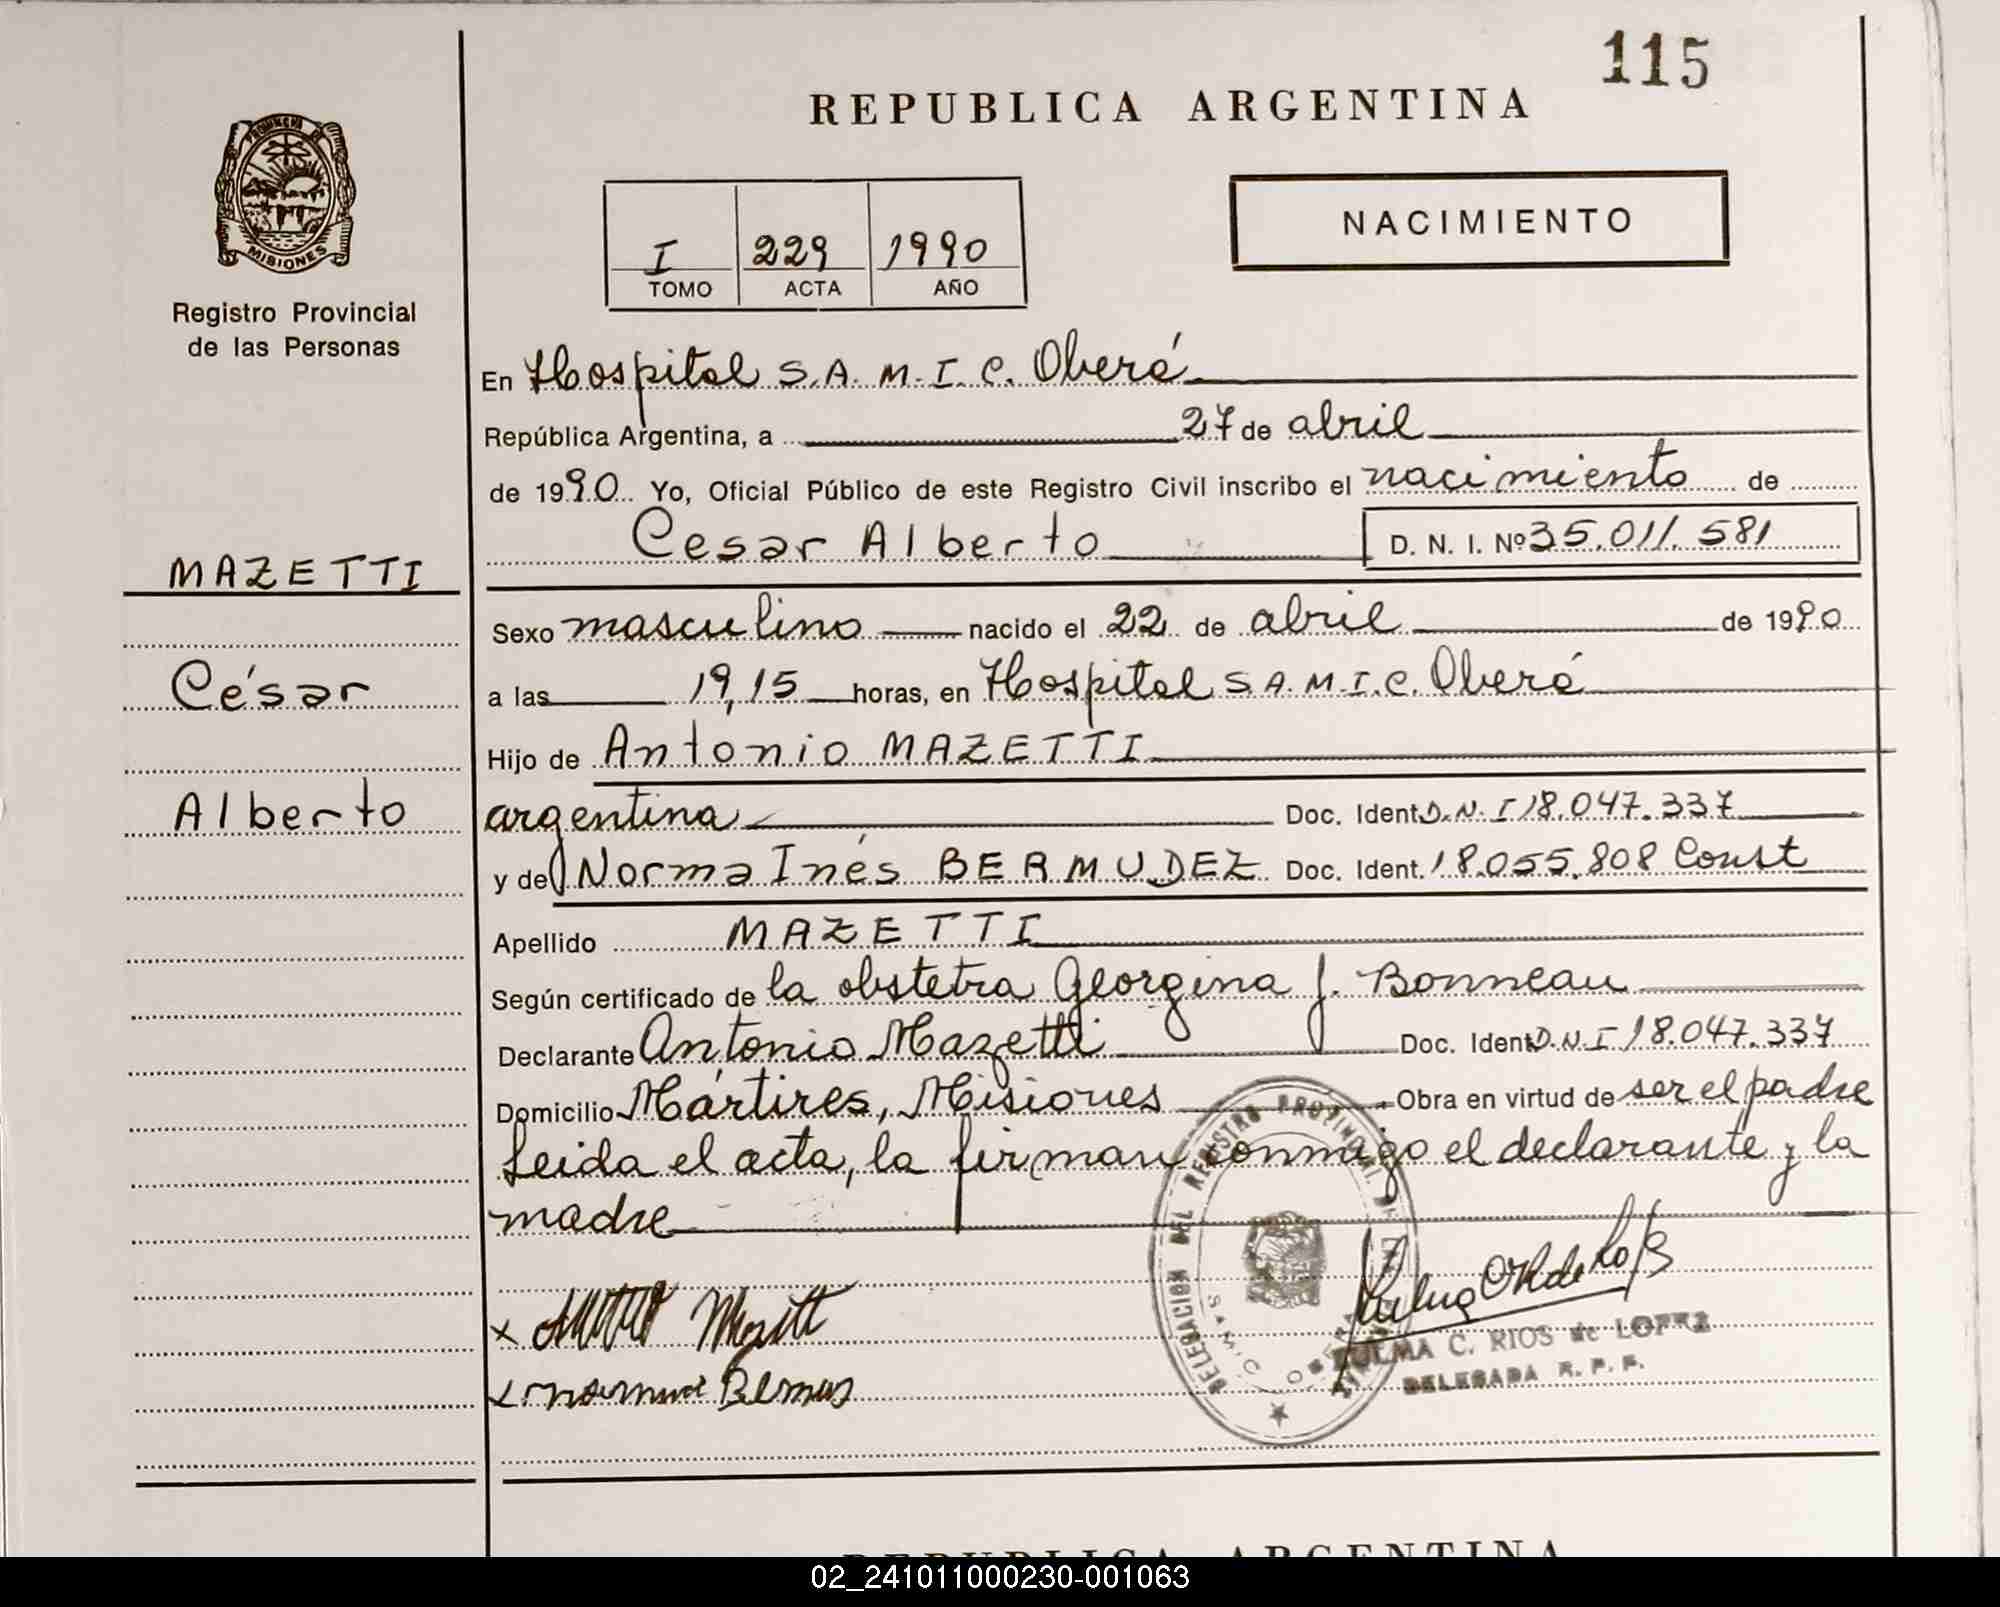 115
REPUBLICA ARGENTINA
PROVINCIA DE
MISIONES
Registro Provincial
de las Personas
I 229 1990
TOMO ACTA AÑO
NACIMIENTO
En Hospital S.A.M.I.C. Oberá
República Argentina, a 27 de abril
de 1990 Yo, Oficial Público de este Registro Civil inscribo el nacimiento de
Cesar Alberto D. N. I. Nº 35.011.581
MAZETTI
César
Alberto
Sexo masculino nacido el 22 de abril de 1990
a las 19,15 horas, en Hospital S.A.M.I.C. Oberá
Hijo de Antonio MAZETTI
argentina Doc. Ident. D.N.I 18.047.337
y de Norma Inés BERMUDEZ Doc. Ident. 18.055.808 Const
Apellido MAZETTI
Según certificado de la obstetra Georgina J. Bonneau
Declarante Antonio Mazetti Doc. Ident. D.N.I 18.047.337
Domicilio Mártires, Misiones Obra en virtud de ser el padre
Leida el acta, la firman conmigo el declarante y la
madre
DELEGACION DEL REGISTRO PROVINCIAL DE
C. RIOS de LOPEZ
DELEGADA R. P. P.
REPUBLICA ARGENTINA
02_241011000230-001063